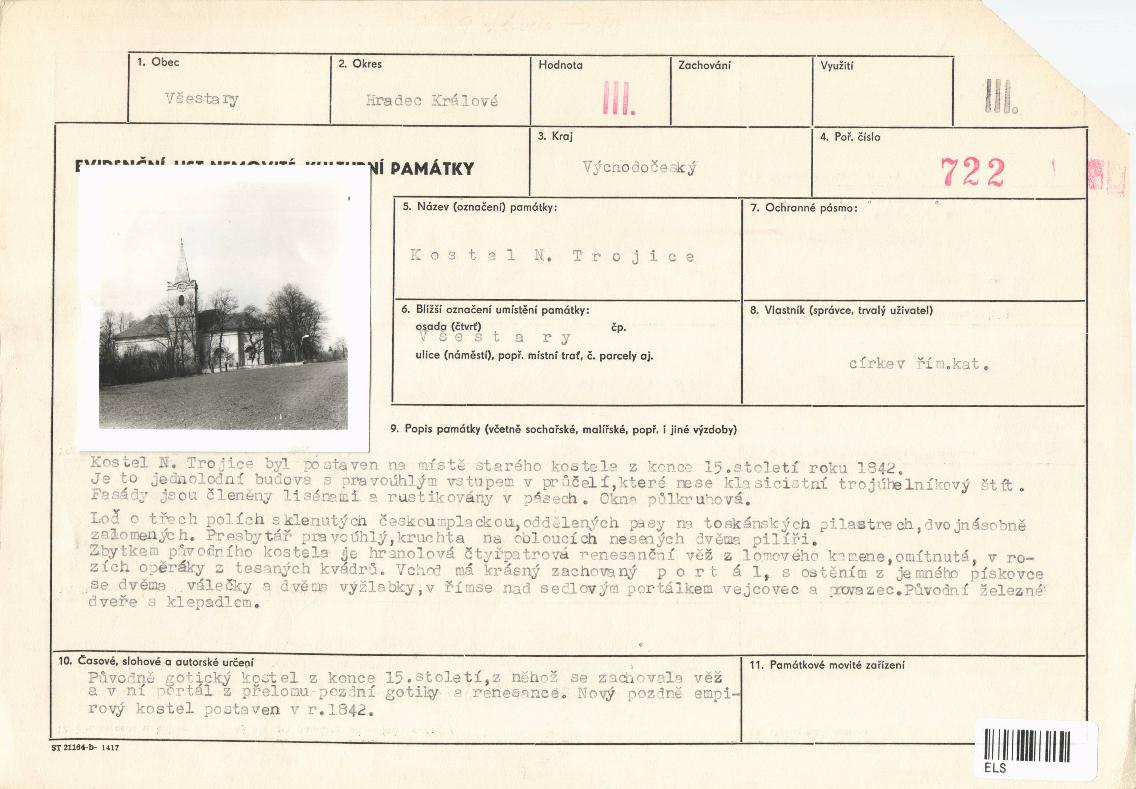 1. Obec
Všestary
2. Okres
Hradec Králové
Hodnota
III.
Zachování
Využití
III.
EVIDENČNÍ LIST NEMOVITÉ KULTURNÍ PAMÁTKY
3. Kraj
Východočeský
4. Poř. číslo
722
5. Název (označení) památky:
Kostel N. Trojice
7. Ochranné pásmo:
6. Bližší označení umístění památky:
osada (čtvrť) čp.
Všestary
ulice (náměstí), popř. místní trať, č. parcely aj.
8. Vlastník (správce, trvalý uživatel)
církev řím.kat.
9. Popis památky (včetně sochařské, malířské, popř. i jiné výzdoby)
Kostel N. Trojice byl postaven na místě starého kostela z konce 15.století roku 1842.
Je to jednolodní budova s pravoúhlým vstupem v průčelí,které nese klasicistní trojúhelníkový štít.
Fasády jsou členěny lisénami a rustikovány v pásech. Okna půlkruhová.
Loď o třech polích sklenutých českoumplackou,oddělených pasy na toskánských pilastrech,dvojnásobně
zalomených. Presbytář pravoúhlý,kruchta na obloucích nesených dvěma pilíři.
Zbytkem původního kostela je hranolová čtyřpatrová renesanční věž z lomového kamene,omítnutá, v ro-
zích opěráky z tesaných kvádrů. Vchod má krásný zachovaný p o r t á l, s ostěním z jemného pískovce
se dvěma válečky a dvěma výžlabky,v římse nad sedlovým portálkem vejcovec a provazec.Původní železné
dveře s klepadlem.
10. Časové, slohové a autorské určení
Původně gotický kostel z konce 15.století,z něhož se zachovala věž
a v ní portál z přelomu pozdní gotiky a renesance. Nový pozdně empi-
rový kostel postaven v r.1842.
11. Památkové movité zařízení
ST 21164-b- 1417
ELS